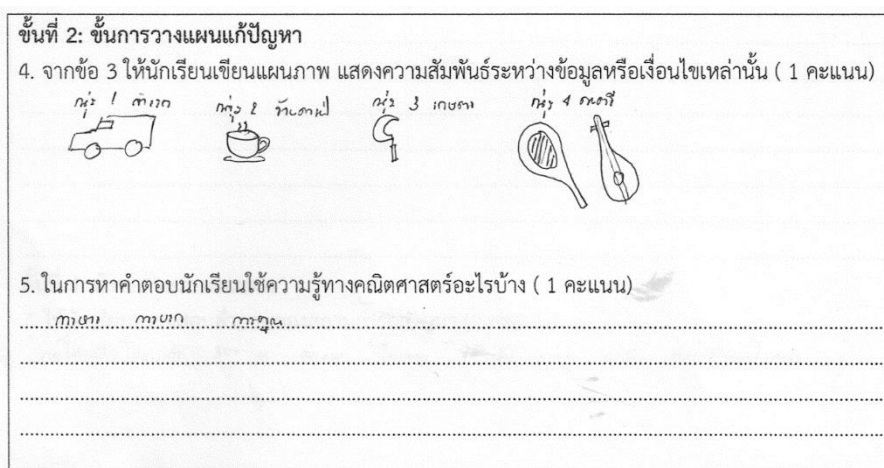 ขั้นที่ 2: ขั้นการวางแผนแก้ปัญหา
4. จากข้อ 3 ให้นักเรียนเขียนแผนภาพ แสดงความสัมพันธ์ระหว่างข้อมูลหรือเงื่อนไขเหล่านั้น ( 1 คะแนน)
กลุ่ม 1 กลุ่ม 2 กลุ่ม 3 เกษตร กลุ่ม 4 ดนตรี
5. ในการหาคำตอบนักเรียนใช้ความรู้ทางคณิตศาสตร์อะไรบ้าง ( 1 คะแนน)
การหาร การบวก การคูณ